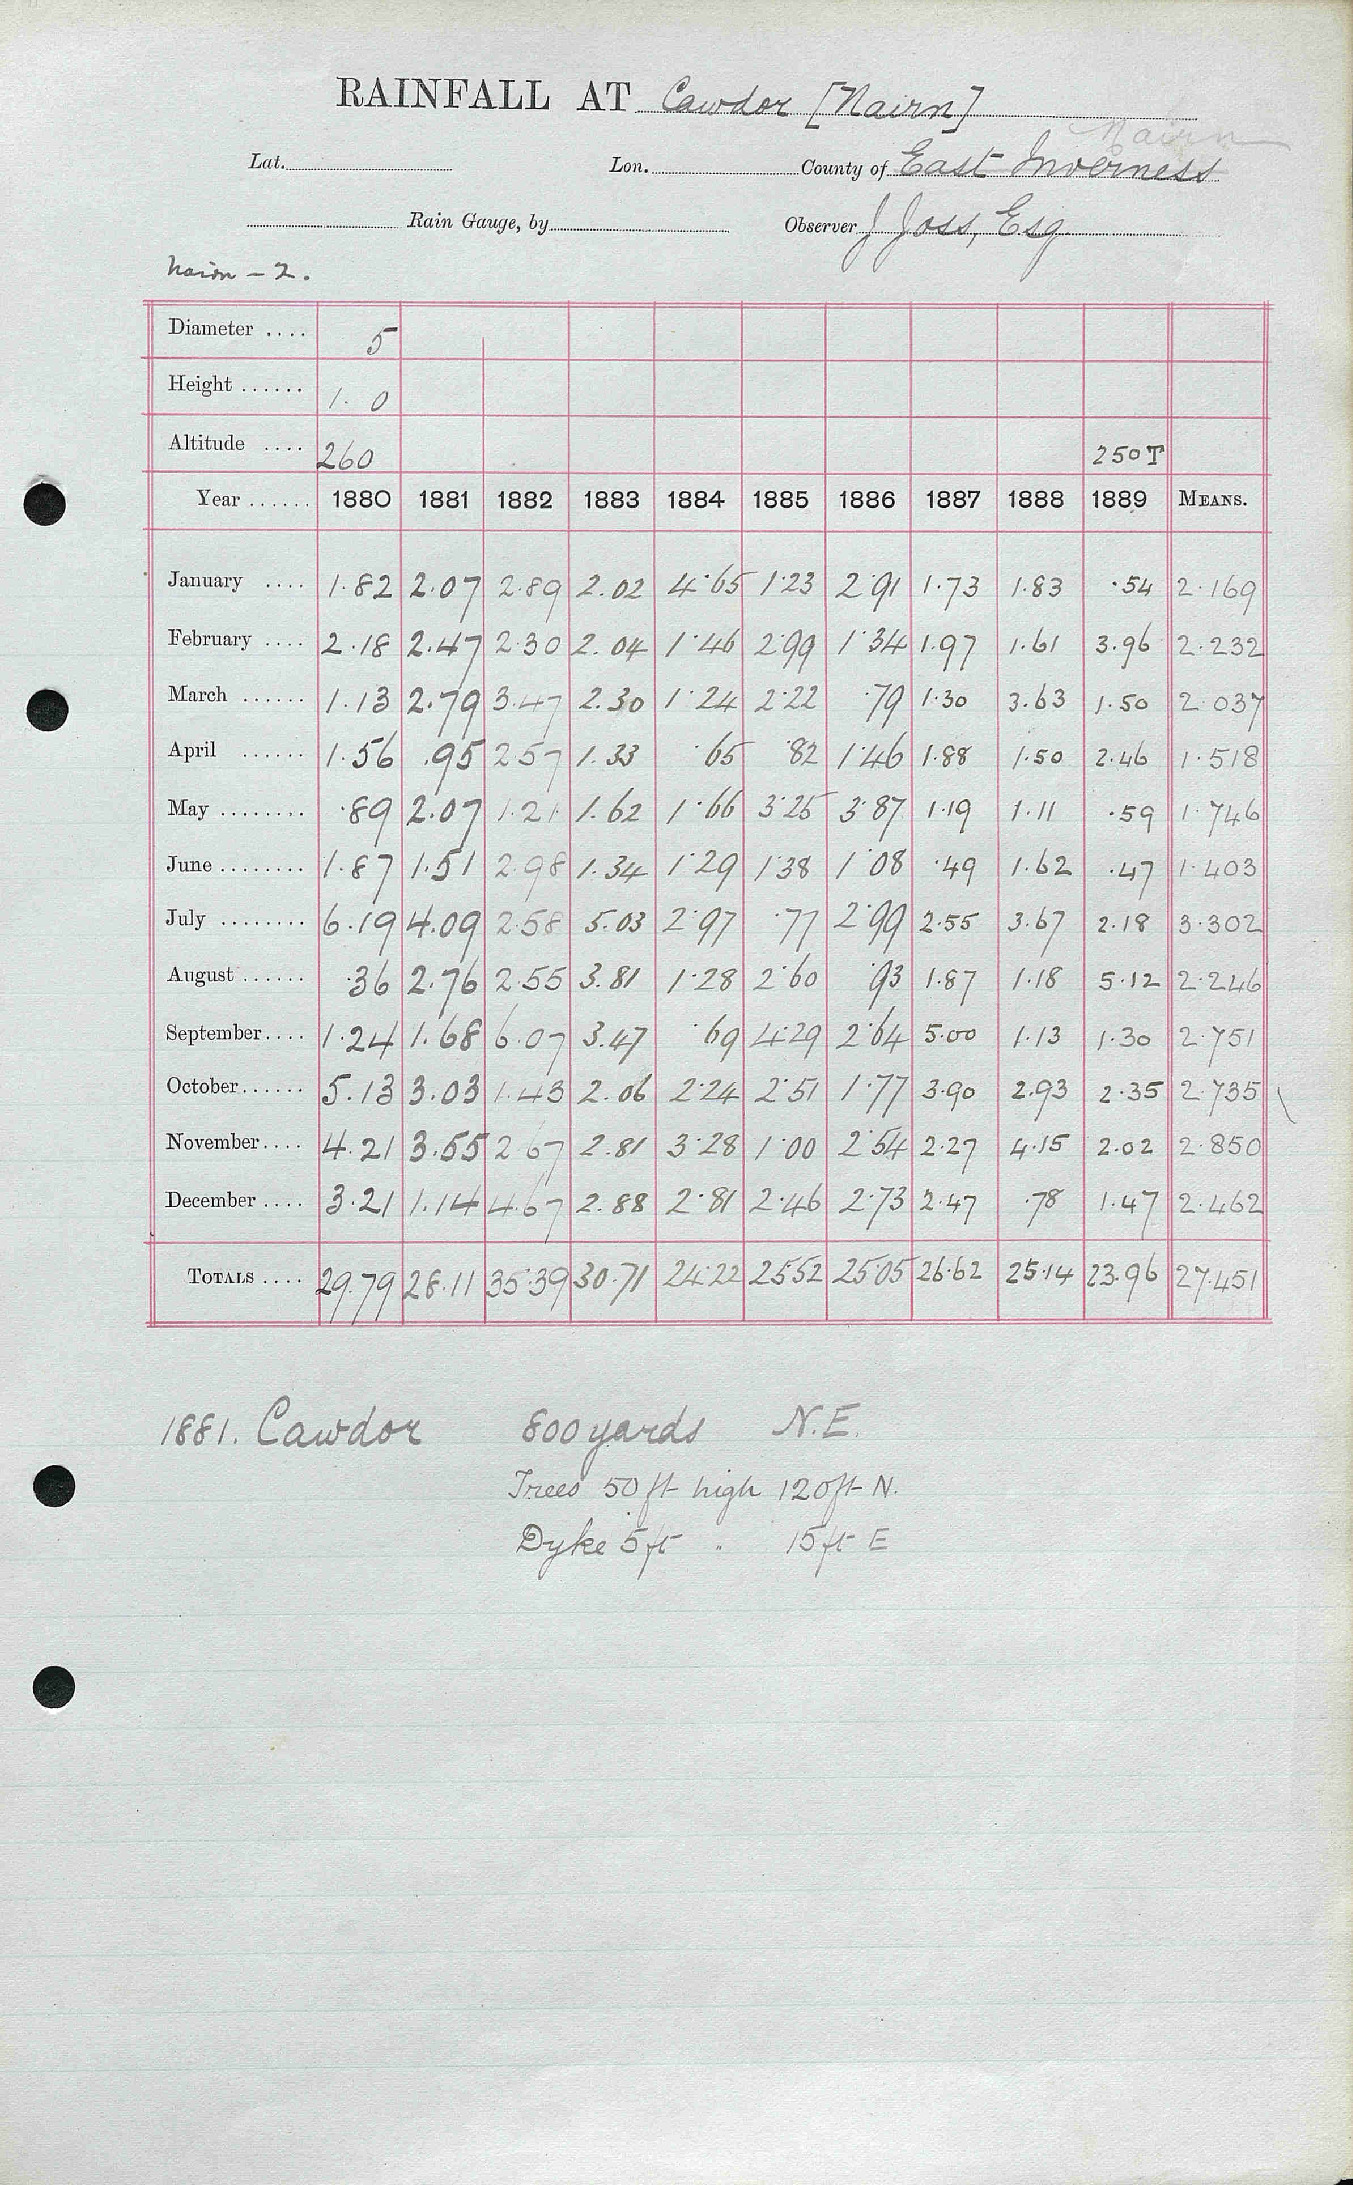 RAINFALL AT Cawdor [Nairn]
Nairn
Lat. Lon. County of East Inverness
Rain Gauge, by Observer J Joss, Esq
Nairn - 2.
Diameter .... 5
Height ...... 1. 0
Altitude .... 260 250T
Year ...... 1880 1881 1882 1883 1884 1885 1886 1887 1888 1889 MEANS.
January .... 1.82 2.07 2.89 2.02 4.65 1.23 2.91 1.73 1.83 .54 2.169
February .... 2.18 2.47 2.30 2.04 1.46 2.99 1.34 1.97 1.61 3.96 2.232
March ...... 1.13 2.79 3.47 2.30 1.24 2.22 .79 1.30 3.63 1.50 2.037
April ...... 1.56 .95 2.57 1.33 .65 .82 1.46 1.88 1.50 2.46 1.518
May ........ .89 2.07 1.21 1.62 1.66 3.25 3.87 1.19 1.11 .59 1.746
June ........ 1.87 1.51 2.98 1.34 1.29 1.38 1.08 .49 1.62 .47 1.403
July ........ 6.19 4.09 2.58 5.03 2.97 .77 2.99 2.55 3.67 2.18 3.302
August ...... .36 2.76 2.55 3.81 1.28 2.60 .93 1.87 1.18 5.12 2.246
September.... 1.24 1.68 6.07 3.47 .69 4.29 2.64 5.00 1.13 1.30 2.751
October...... 5.13 3.03 1.43 2.06 2.24 2.51 1.77 3.90 2.93 2.35 2.735
November.... 4.21 3.55 2.67 2.81 3.28 1.00 2.54 2.27 4.15 2.02 2.850
December .... 3.21 1.14 4.67 2.88 2.81 2.46 2.73 2.47 .78 1.47 2.462
TOTALS .... 29.79 28.11 35.39 30.71 24.22 25.52 25.05 26.62 25.14 23.96 27.451
1881. Cawdor 800 yards N.E.
Trees 50 ft high 120ft N.
Dyke 5ft . 15ft E